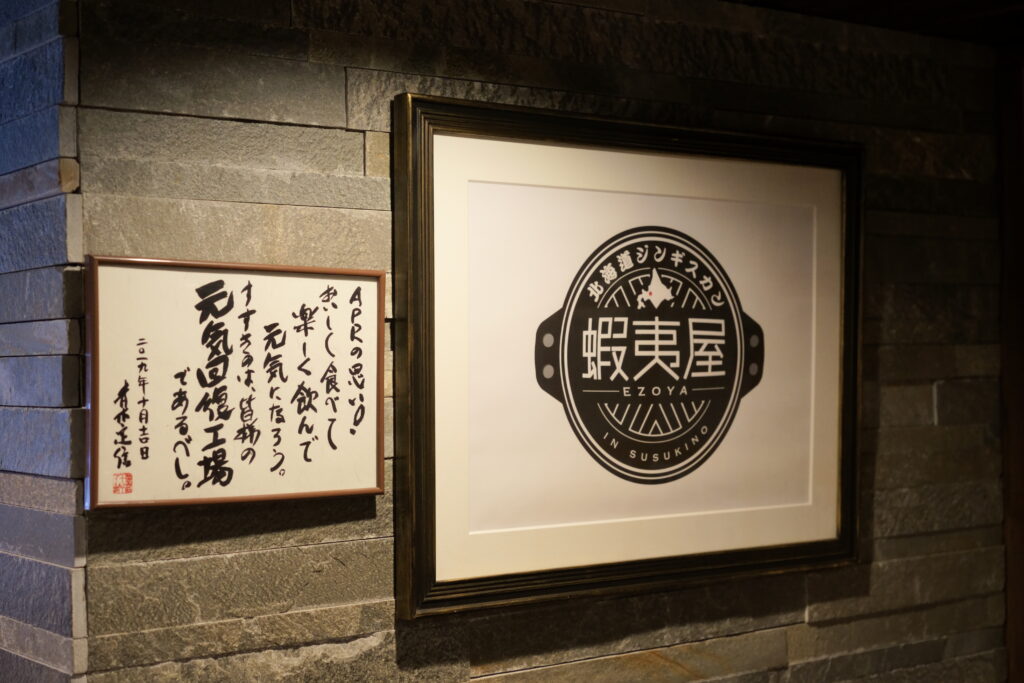 APRの思い!
おいしく食べて
楽しく飲んで
元気になろう。
すすきのは、皆様の
元気回復工場
であるべし。
二〇一九年十月吉日
北海道ジンギスカン
蝦夷屋
EZOYA
IN SUSUKINO